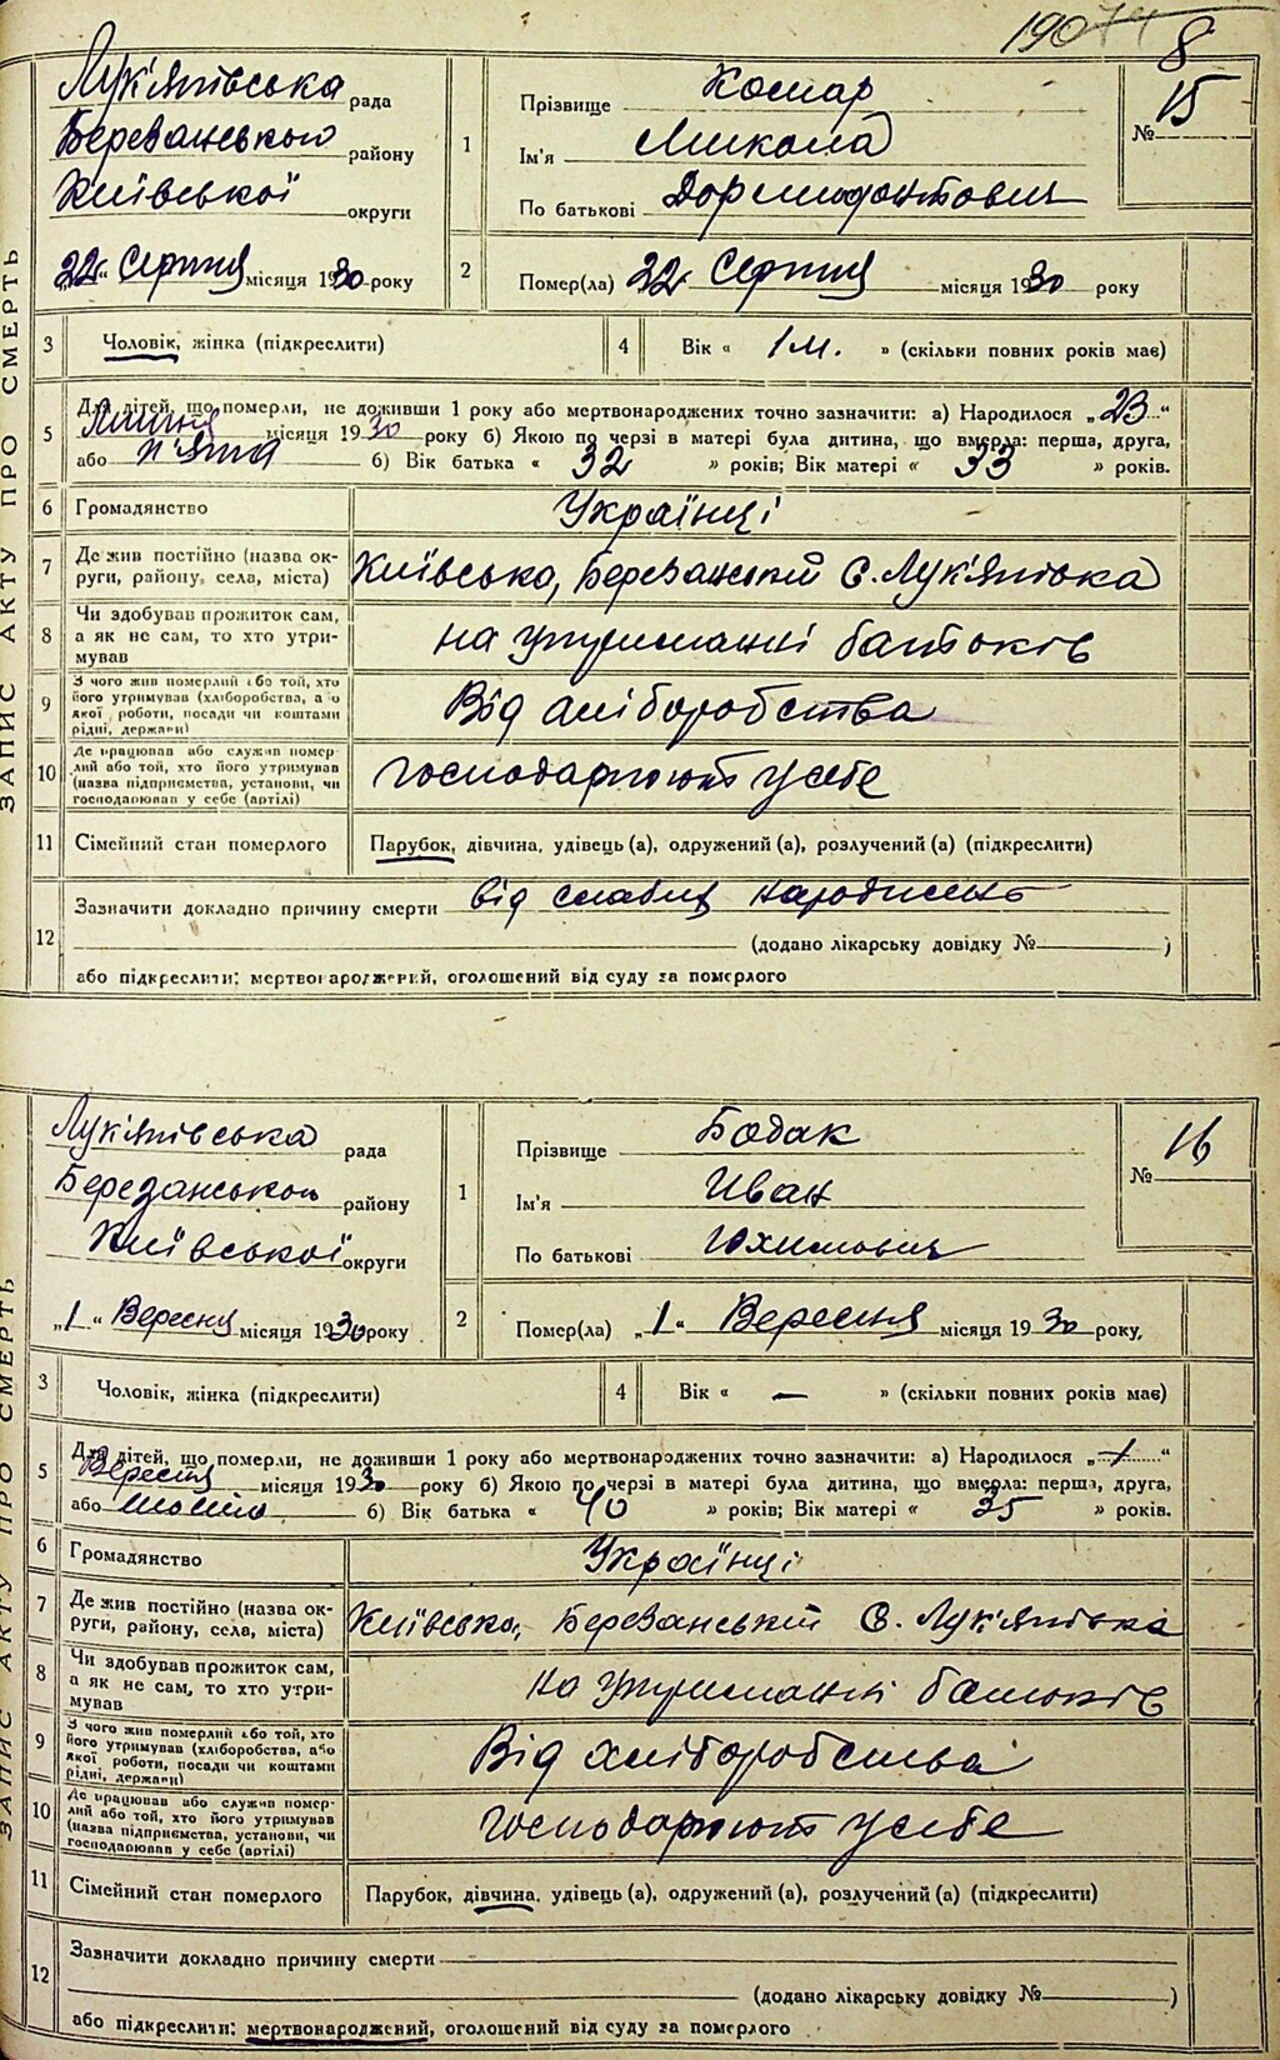 190
8
Лук'янівська рада
Березанського району
Київської округи
„22“ Серпня місяця 1930 року
1
Прізвище Комар
Ім'я Микола
По батькові Дормидонтович
№ 15
2
Помер(ла) 22 Серпня місяця 1930 року
ЗАПИС АКТУ ПРО СМЕРТЬ
3 Чоловік, жінка (підкреслити)
4 Вік « 1 м. » (скільки повних років має)
5 Для дітей, що померли, не доживши 1 року або мертвонароджених точно зазначити: а) Народилося „23“
Липня місяця 1930 року б) Якою по черзі в матері була дитина, що вмерла: перша, друга,
або п'ята б) Вік батька « 32 » років; Вік матері « 33 » років.
6 Громадянство Українці
7 Де жив постійно (назва ок-
руги, району, села, міста) Київська, Березанський С. Лук'янівка
8 Чи здобував прожиток сам,
а як не сам, то хто утри-
мував на утриманні батьків
9 З чого жив померлий або той, хто
його утримував (хліборобства, або
якої роботи, посади чи коштами
рідні, держави) Від хліборобства
10 Де працював або служив помер-
лий або той, хто його утримував
(назва підприємства, установи, чи
господарював у себе (артілі) господарюють у себе
11 Сімейний стан померлого Парубок, дівчина, удівець (а), одружений (а), розлучений (а) (підкреслити)
12 Зазначити докладно причину смерти від слабих народжень
(додано лікарську довідку № )
або підкреслити: мертвонароджений, оголошений від суду за померлого
Лук'янівська рада
Березанського району
Київської округи
„1“ Вересня місяця 1930 року
1
Прізвище Бодак
Ім'я Иван
По батькові Юхимович
№ 16
2
Помер(ла) „1“ Вересня місяця 1930 року,
ЗАПИС АКТУ ПРО СМЕРТЬ
3 Чоловік, жінка (підкреслити)
4 Вік « — » (скільки повних років має)
5 Для дітей, що померли, не доживши 1 року або мертвонароджених точно зазначити: а) Народилося „1“
Вересня місяця 1930 року б) Якою по черзі в матері була дитина, що вмерла: перша, друга,
або шоста б) Вік батька « 40 » років; Вік матері « 35 » років.
6 Громадянство Українці
7 Де жив постійно (назва ок-
руги, району, села, міста) Київська, Березанський С. Лук'янівка
8 Чи здобував прожиток сам,
а як не сам, то хто утри-
мував на утриманні батьків
9 З чого жив померлий або той, хто
його утримував (хліборобства, або
якої роботи, посади чи коштами
рідні, держави) Від хліборобства
10 Де працював або служив помер-
лий або той, хто його утримував
(назва підприємства, установи, чи
господарював у себе (артілі) господарюют у себе
11 Сімейний стан померлого Парубок, дівчина, удівець (а), одружений (а), розлучений (а) (підкреслити)
12 Зазначити докладно причину смерти
(додано лікарську довідку № )
або підкреслити: мертвонароджений, оголошений від суду за померлого